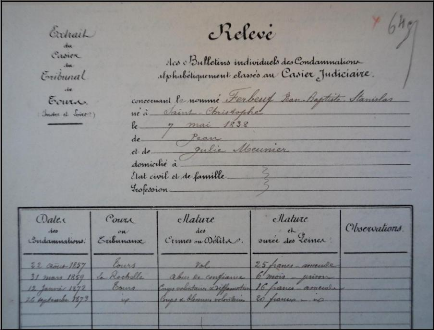 Extrait
du
Casier
du
Tribunal
de
Tours
(Indre et Loire)
Relevé
des Bulletins individuels des Condamnations
alphabétiquement classés au Casier Judiciaire.
concernant le nommé Ferbeuf Jean Baptiste Stanislas
né à Saint Christophe
le 7 mai 1832
de Jean
et de Julie Meunier
domicilié à
Etat civil et de famille
Profession
Dates des Condamnations
Cours ou Tribunaux
Nature des Crimes ou Délits
Nature et durée des Peines
Observations
22 1857 Tours Vol 25 francs amende
31 mars 1859 La Rochelle Abus de confiance 6 mois prison
12 janvier 1872 Tours Coups volontaires 16 francs amende
26 septembre 1877 Coups et blessures volontaires 20 francs